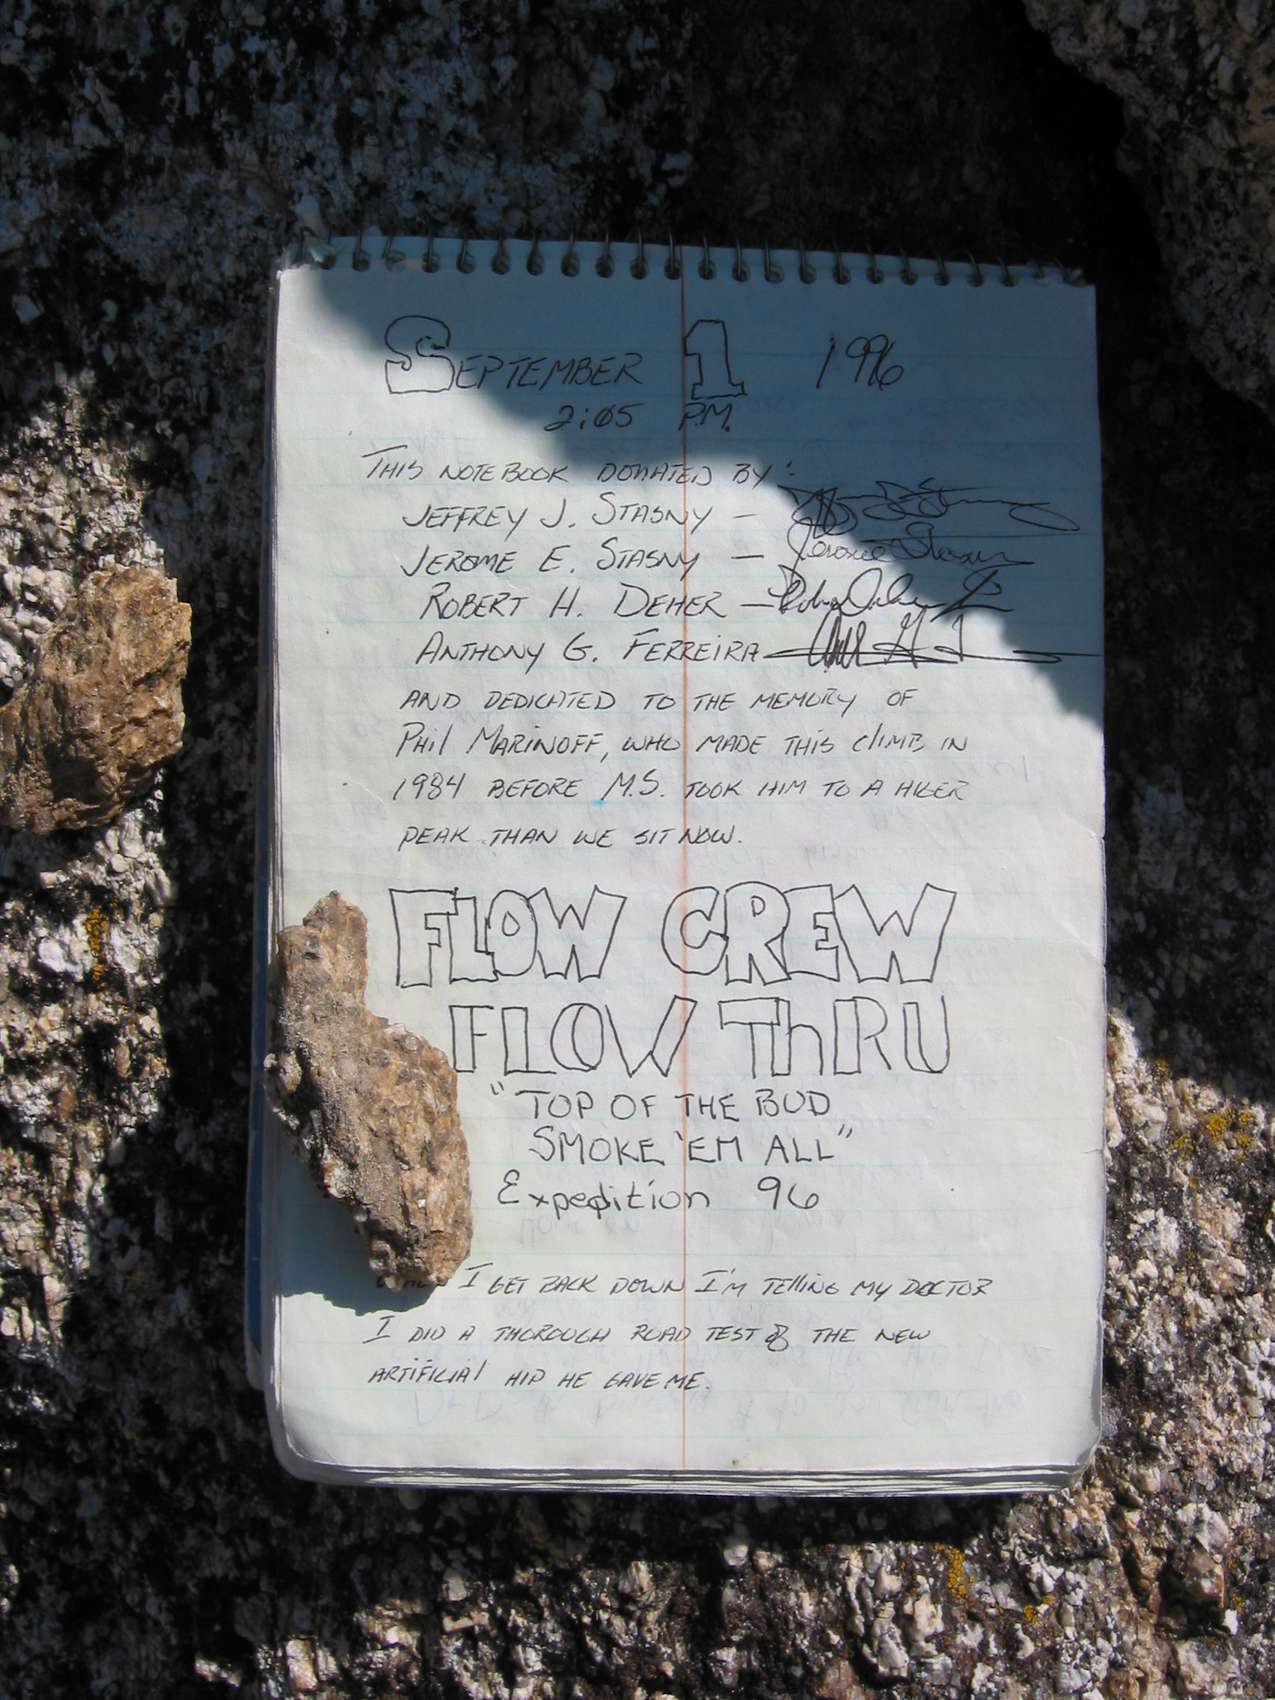 SEPTEMBER 1 1996
2:05 P.M.
THIS NOTEBOOK DONATED BY:
JEFFREY J. STASNY -
JEROME E. STASNY -
ROBERT H. DEHER -
ANTHONY G. FERREIRA
AND DEDICATED TO THE MEMORY OF
Phil MARINOFF, WHO MADE THIS ClIMB IN
1984 BEFORE M.S. TOOK HIM TO A HIGER
PEAK THAN WE SIT NOW.
FLOW CREW
FLOW ThRU
"TOP OF THE BUD
SMOKE 'EM ALL"
Expedition 96
I GET BACK DOWN I'M TElliNG MY DOCTOR
I DID A THOROUGH ROAD TEST OF THE NEW
ARTIFICIAl HIP HE GAVE ME.